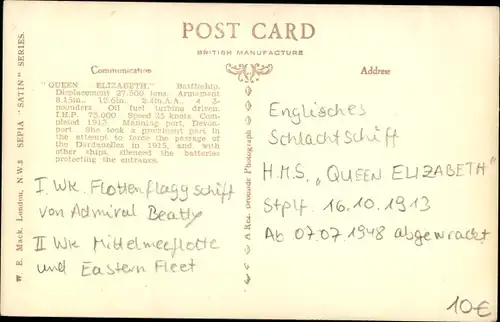 POST CARD
BRITISH MANUFACTURE
Communication
Address
"QUEEN ELIZABETH." Battleship.
Displacement 27,500 tons. Armament
8.15in., 12.6in., 2.4in.A.A., 4 3-
pounders Oil fuel turbines driven.
I.H.P. 75,000 Speed 25 knots Com-
pleted 1915 Manning port, Devon-
port. She took a prominent part in
the attempt to force the passage of
the Dardanelles in 1915, and with
other ships, silenced the batteries
protecting the entrance.
I. WK. Flottenflaggschiff
von Admiral Beatty
II WK Mittelmeeflotte
und Eastern Fleet
W. E. Mack, London, N.W.3 SEPIA "SATIN" SERIES.
A Real Bromide Photograph
Englisches
Schlachtschiff
H.M.S. „QUEEN ELIZABETH"
Stplf. 16.10.1913
Ab 07.07.1948 abgewrackt
10€